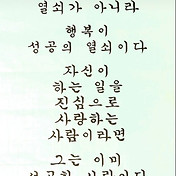 열쇠가 아니라
행복이
성공의 열쇠이다
자신이
하는 일을
진심으로
사랑하는
사람이라면
그는 이미
성공한 사람이다